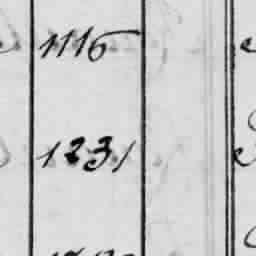 1116
1231